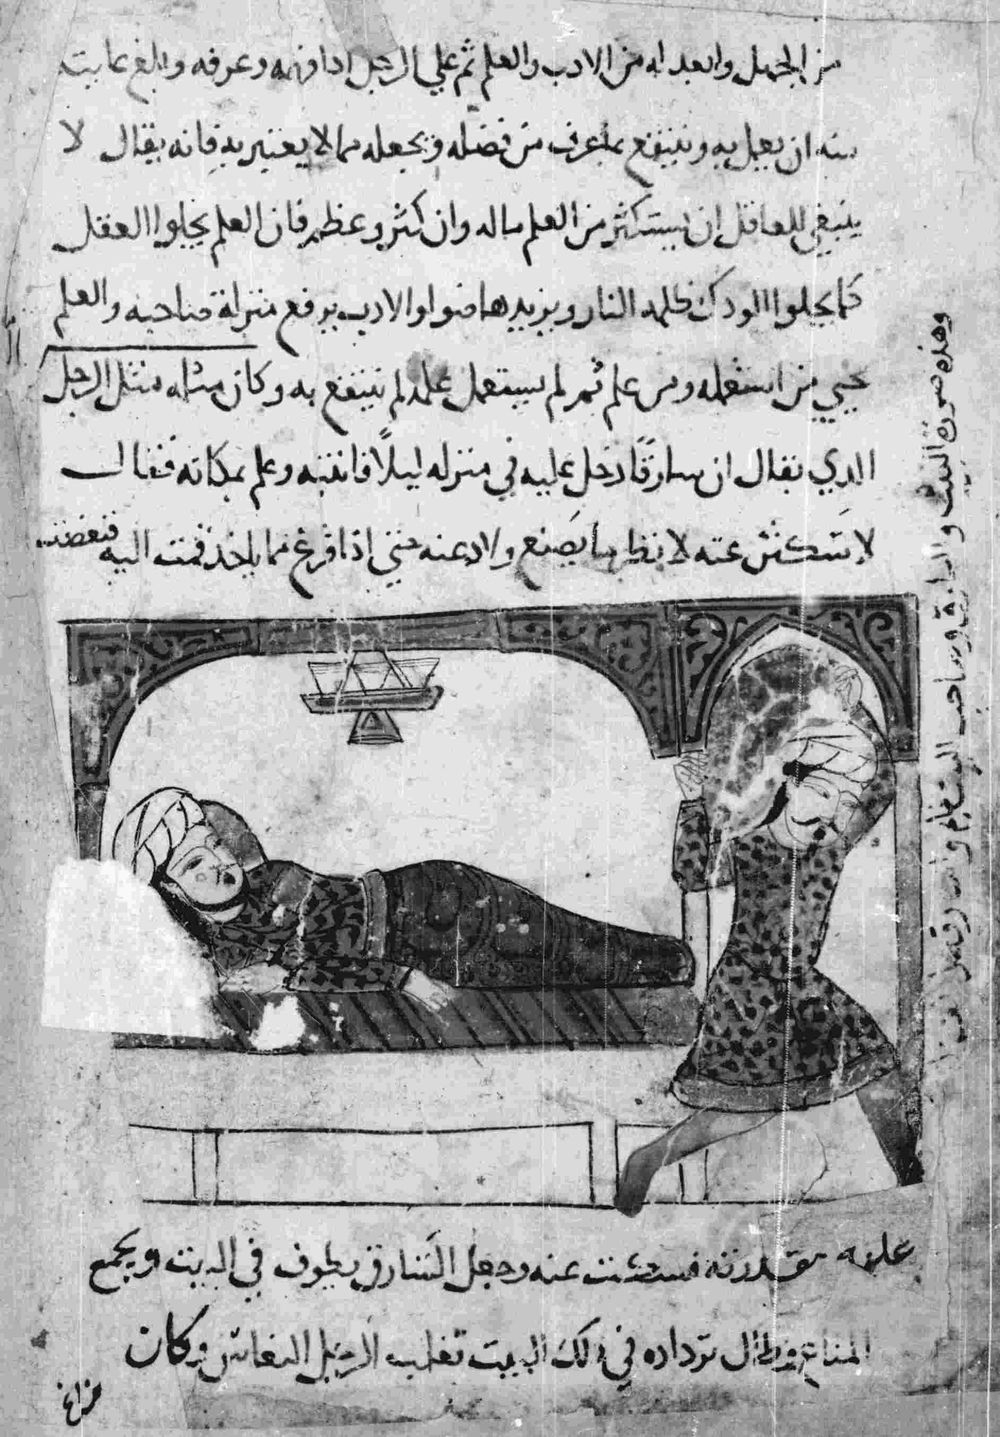 من الجهل وابعداه من الادب والعلم ثم علي الرجل اذا فهمه وعرفه وبلغ غايته
منه ان يعمل به وينتفع بما عرف من فضله ويجعله مما لا يعتبر به فانه يقال لا
ينبغي للعاقل ان يستكثر من العلم ماله وان كثر وعظم فان العلم يجلوا العقل
كما يجلوا الودك ظلمة النار ويزيدها ضوا والادب يرفع منزلة صاحبه والعلم
يحيي من استعمله ومن علم ثم لم يستعمل علمه لم ينتفع به وكان مثله مثل الرجل
الذي يقال ان سارقًا دخل عليه في منزله ليلًا فانتبه وعلم بمكانه فقال
لاسكتن عنه لانظر ما يصنع ولادعنه حتي اذا فرغ مما ياخذ قمت اليه فنغصت
عليه فسكت عنه وجعل السارق يطوف في البيت ويجمع
المتاع فطال ترداده في ذلك البيت فغلب الرجل النعاس وكان
وهذه صورة البيت والسارق وصاحب البيت نايم